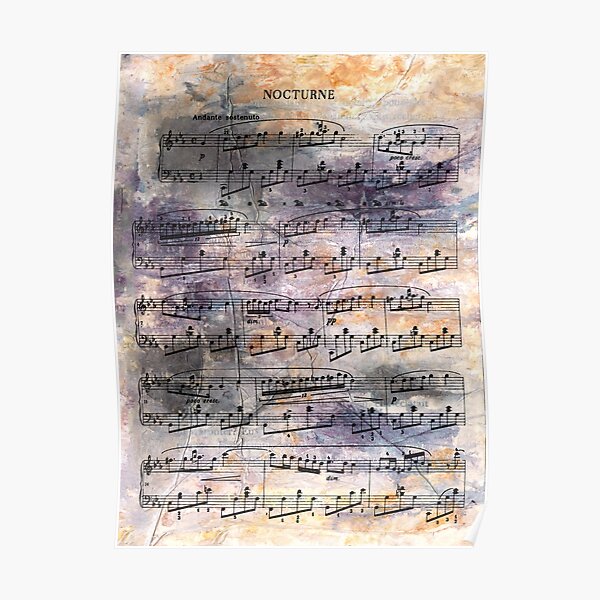 NOCTURNE
Andante sostenuto
p
poco cresc.
p
dim.
pp
poco cresc.
12
dim.